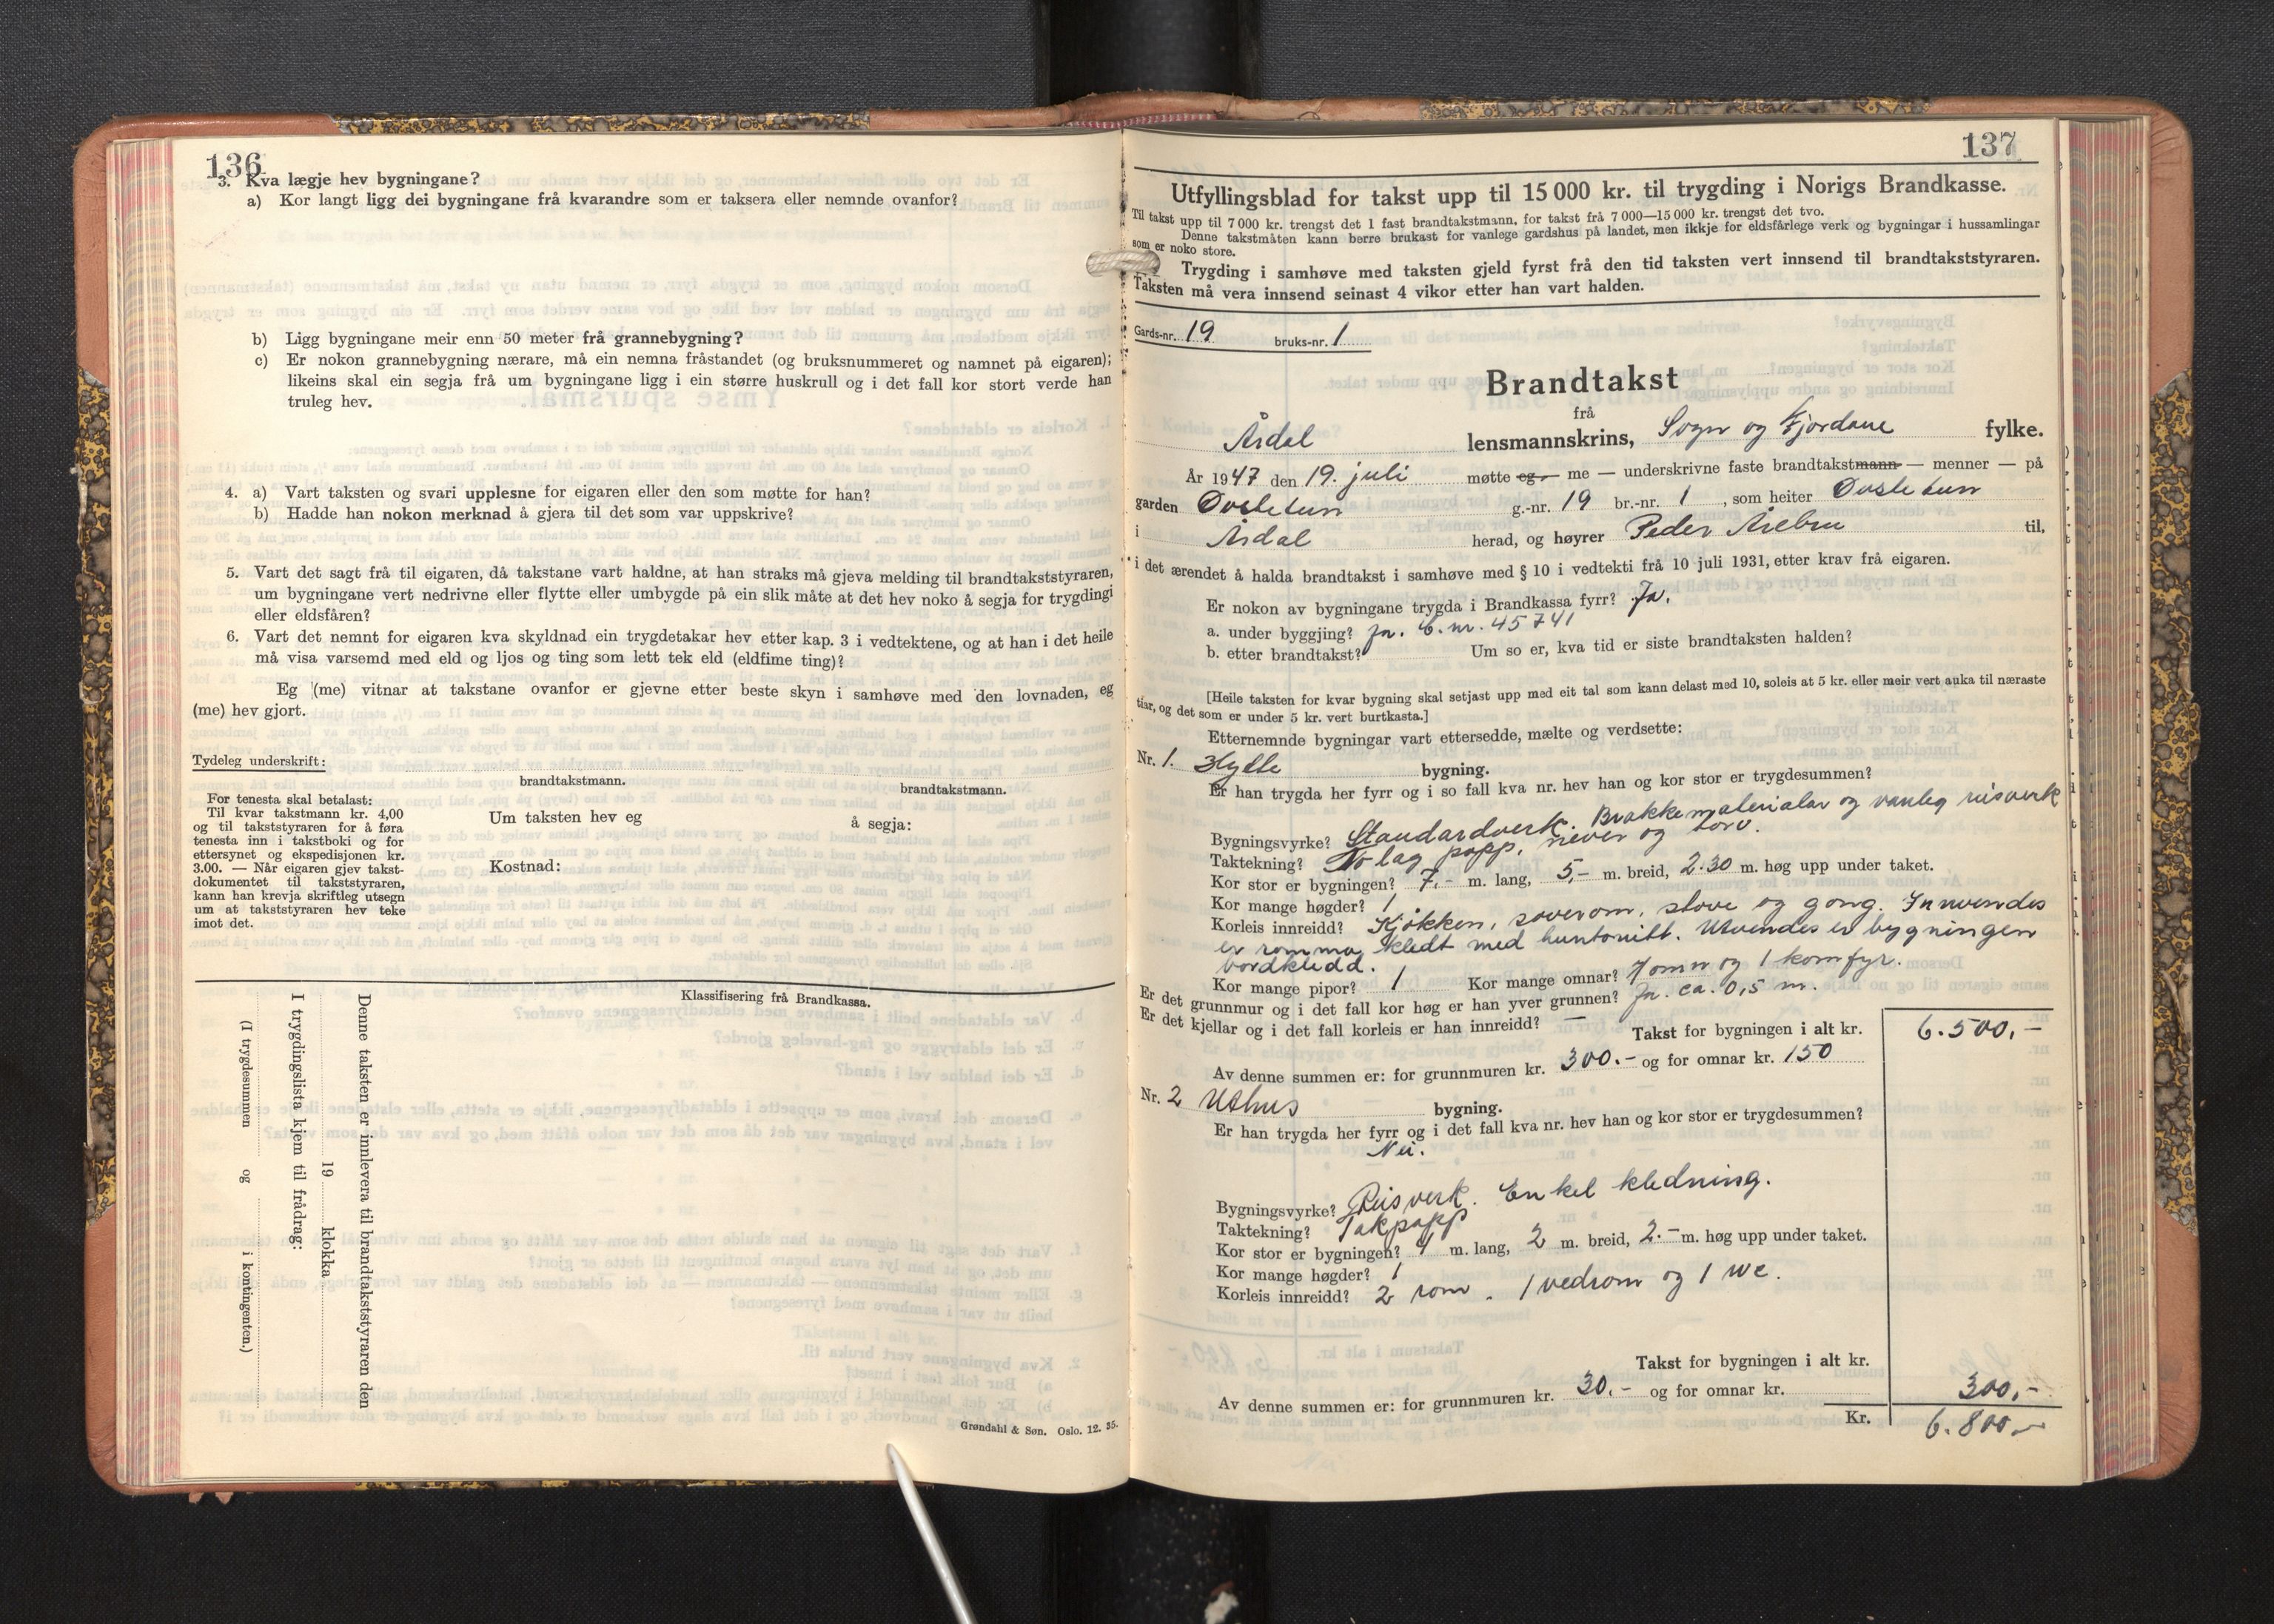 136
3. Kva lægje hev bygningane?
a) Kor langt ligg dei bygningane frå kvarandre som er taksera eller nemnde ovanfor?
b) Ligg bygningane meir enn 50 meter frå grannebygning?
c) Er nokon grannebygning nærare, må ein nemna fråstandet (og bruksnummeret og namnet på eigaren);
likeins skal ein segja frå um bygningane ligg i ein større huskrull og i det fall kor stort verde han
truleg hev.
4. a) Vart taksten og svari upplesne for eigaren eller den som møtte for han?
b) Hadde han nokon merknad å gjera til det som var uppskrive?
5. Vart det sagt frå til eigaren, då takstane vart haldne, at han straks må gjeva melding til brandtakststyraren,
um bygningane vert nedrivne eller flytte eller umbygde på ein slik måte at det hev noko å segja for trygdingi
eller eldsfåren?
6. Vart det nemnt for eigaren kva skyldnad ein trygdetakar hev etter kap. 3 i vedtektene, og at han i det heile
må visa varsemd med eld og ljos og ting som lett tek eld (eldfime ting)?
Eg (me) vitnar at takstane ovanfor er gjevne etter beste skyn i samhøve med den lovnaden, eg
(me) hev gjort.
Tydeleg underskrift:
brandtakstmann. brandtakstmann.
For tenesta skal betalast:
Til kvar takstmann kr. 4,00
og til takststyraren for å føra
tenesta inn i takstboki og for
ettersynet og ekspedisjonen kr.
3.00. — Når eigaren gjev takst-
dokumentet til takststyraren,
kann han krevja skriftleg utsegn
um at takststyraren hev teke
imot det.
Um taksten hev eg å segja:
Kostnad:
Klassifisering frå Brandkassa.
Denne taksten er innlevera til brandtakststyraren den
19 klokka
I trygdingslista kjem til frådrag:
(I trygdesummen og i kontingenten.)
Grøndahl & Søn. Oslo. 12. 35.
137
Utfyllingsblad for takst upp til 15 000 kr. til trygding i Norigs Brandkasse.
Til takst upp til 7 000 kr. trengst det 1 fast brandtakstmann, for takst frå 7 000—15 000 kr. trengst det tvo.
Denne takstmåten kann berre brukast for vanlege gardshus på landet, men ikkje for eldsfårlege verk og bygningar i hussamlingar
som er noko store.
Trygding i samhøve med taksten gjeld fyrst frå den tid taksten vert innsend til brandtakststyraren.
Taksten må vera innsend seinast 4 vikor etter han vart halden.
Gards-nr. 19 bruks-nr. 1
Brandtakst
frå
Årdal lensmannskrins, Sogn og Fjordane fylke.
År 1947 den 19. juli møtte eg — me — underskrivne faste brandtakstmann — menner — på
garden Øvstetun g.-nr. 19 br.-nr. 1, som heiter Øvstetun
i Årdal herad, og høyrer Peder Årebru til,
i det ærendet å halda brandtakst i samhøve med § 10 i vedtekti frå 10 juli 1931, etter krav frå eigaren.
Er nokon av bygningane trygda i Brandkassa fyrr? Ja.
a. under byggjing? Ja. C. nr. 45741
b. etter brandtakst? Um so er, kva tid er siste brandtaksten halden?
[Heile taksten for kvar bygning skal setjast upp med eit tal som kann delast med 10, soleis at 5 kr. eller meir vert auka til næraste
tiar, og det som er under 5 kr. vert burtkasta.]
Etternemnde bygningar vart ettersedde, mælte og verdsette:
Nr. 1. Hytte bygning.
Er han trygda her fyrr og i so fall kva nr. hev han og kor stor er trygdesummen?
Bygningsvyrke? Standardverk. Brakkematerialar og vanleg reisverk
Taktekning? To lag papp, never og torv.
Kor stor er bygningen? 7,- m. lang, 5,- m. breid, 2.30 m. høg upp under taket.
Kor mange høgder? 1
Korleis innreidd? Kjøkken, soverom, stove og gong. Innvendes
er romma kledt med huntonitt. Utvendes er bygningen
bordkledd.
Kor mange pipor? 1 Kor mange omnar? 1 omn og 1 komfyr.
Er det grunnmur og i det fall kor høg er han yver grunnen? Ja. ca. 0,5 m.
Er det kjellar og i det fall korleis er han innreidd? —
Takst for bygningen i alt kr. 6.500,-
Av denne summen er: for grunnmuren kr. 300.- og for omnar kr. 150
Nr. 2 Uthus bygning.
Er han trygda her fyrr og i det fall kva nr. hev han og kor stor er trygdesummen?
Nei.
Bygningsvyrke? Reisverk. Enkel kledning.
Taktekning? Takpapp
Kor stor er bygningen? 4 m. lang, 2 m. breid, 2.- m. høg upp under taket.
Kor mange høgder? 1
Korleis innreidd? 2 rom. 1 vedrom og 1 wc.
Takst for bygningen i alt kr. 300,-
Av denne summen er: for grunnmuren kr. 30.- og for omnar kr.
Kr. 6.800,-